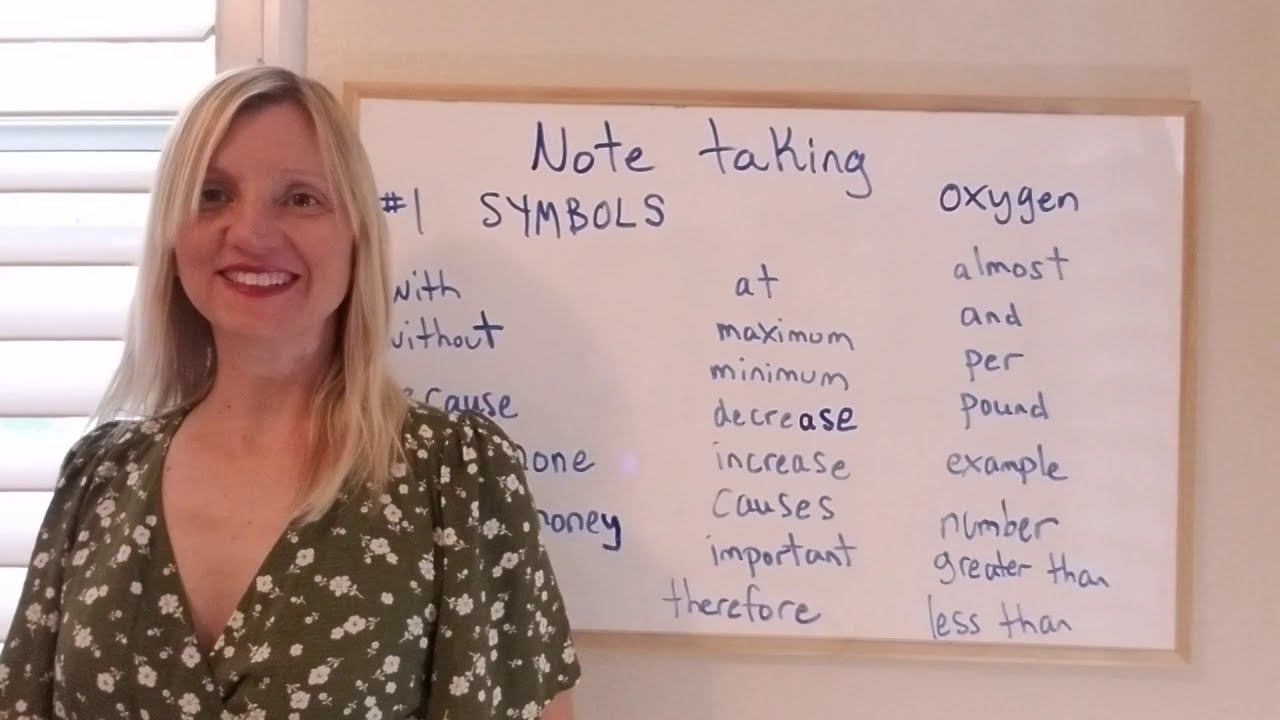 Note taking
#1 SYMBOLS
with
without
because
money
at
maximum
minimum
decrease
increase
causes
important
therefore
oxygen
almost
and
per
pound
example
number
greater than
less than